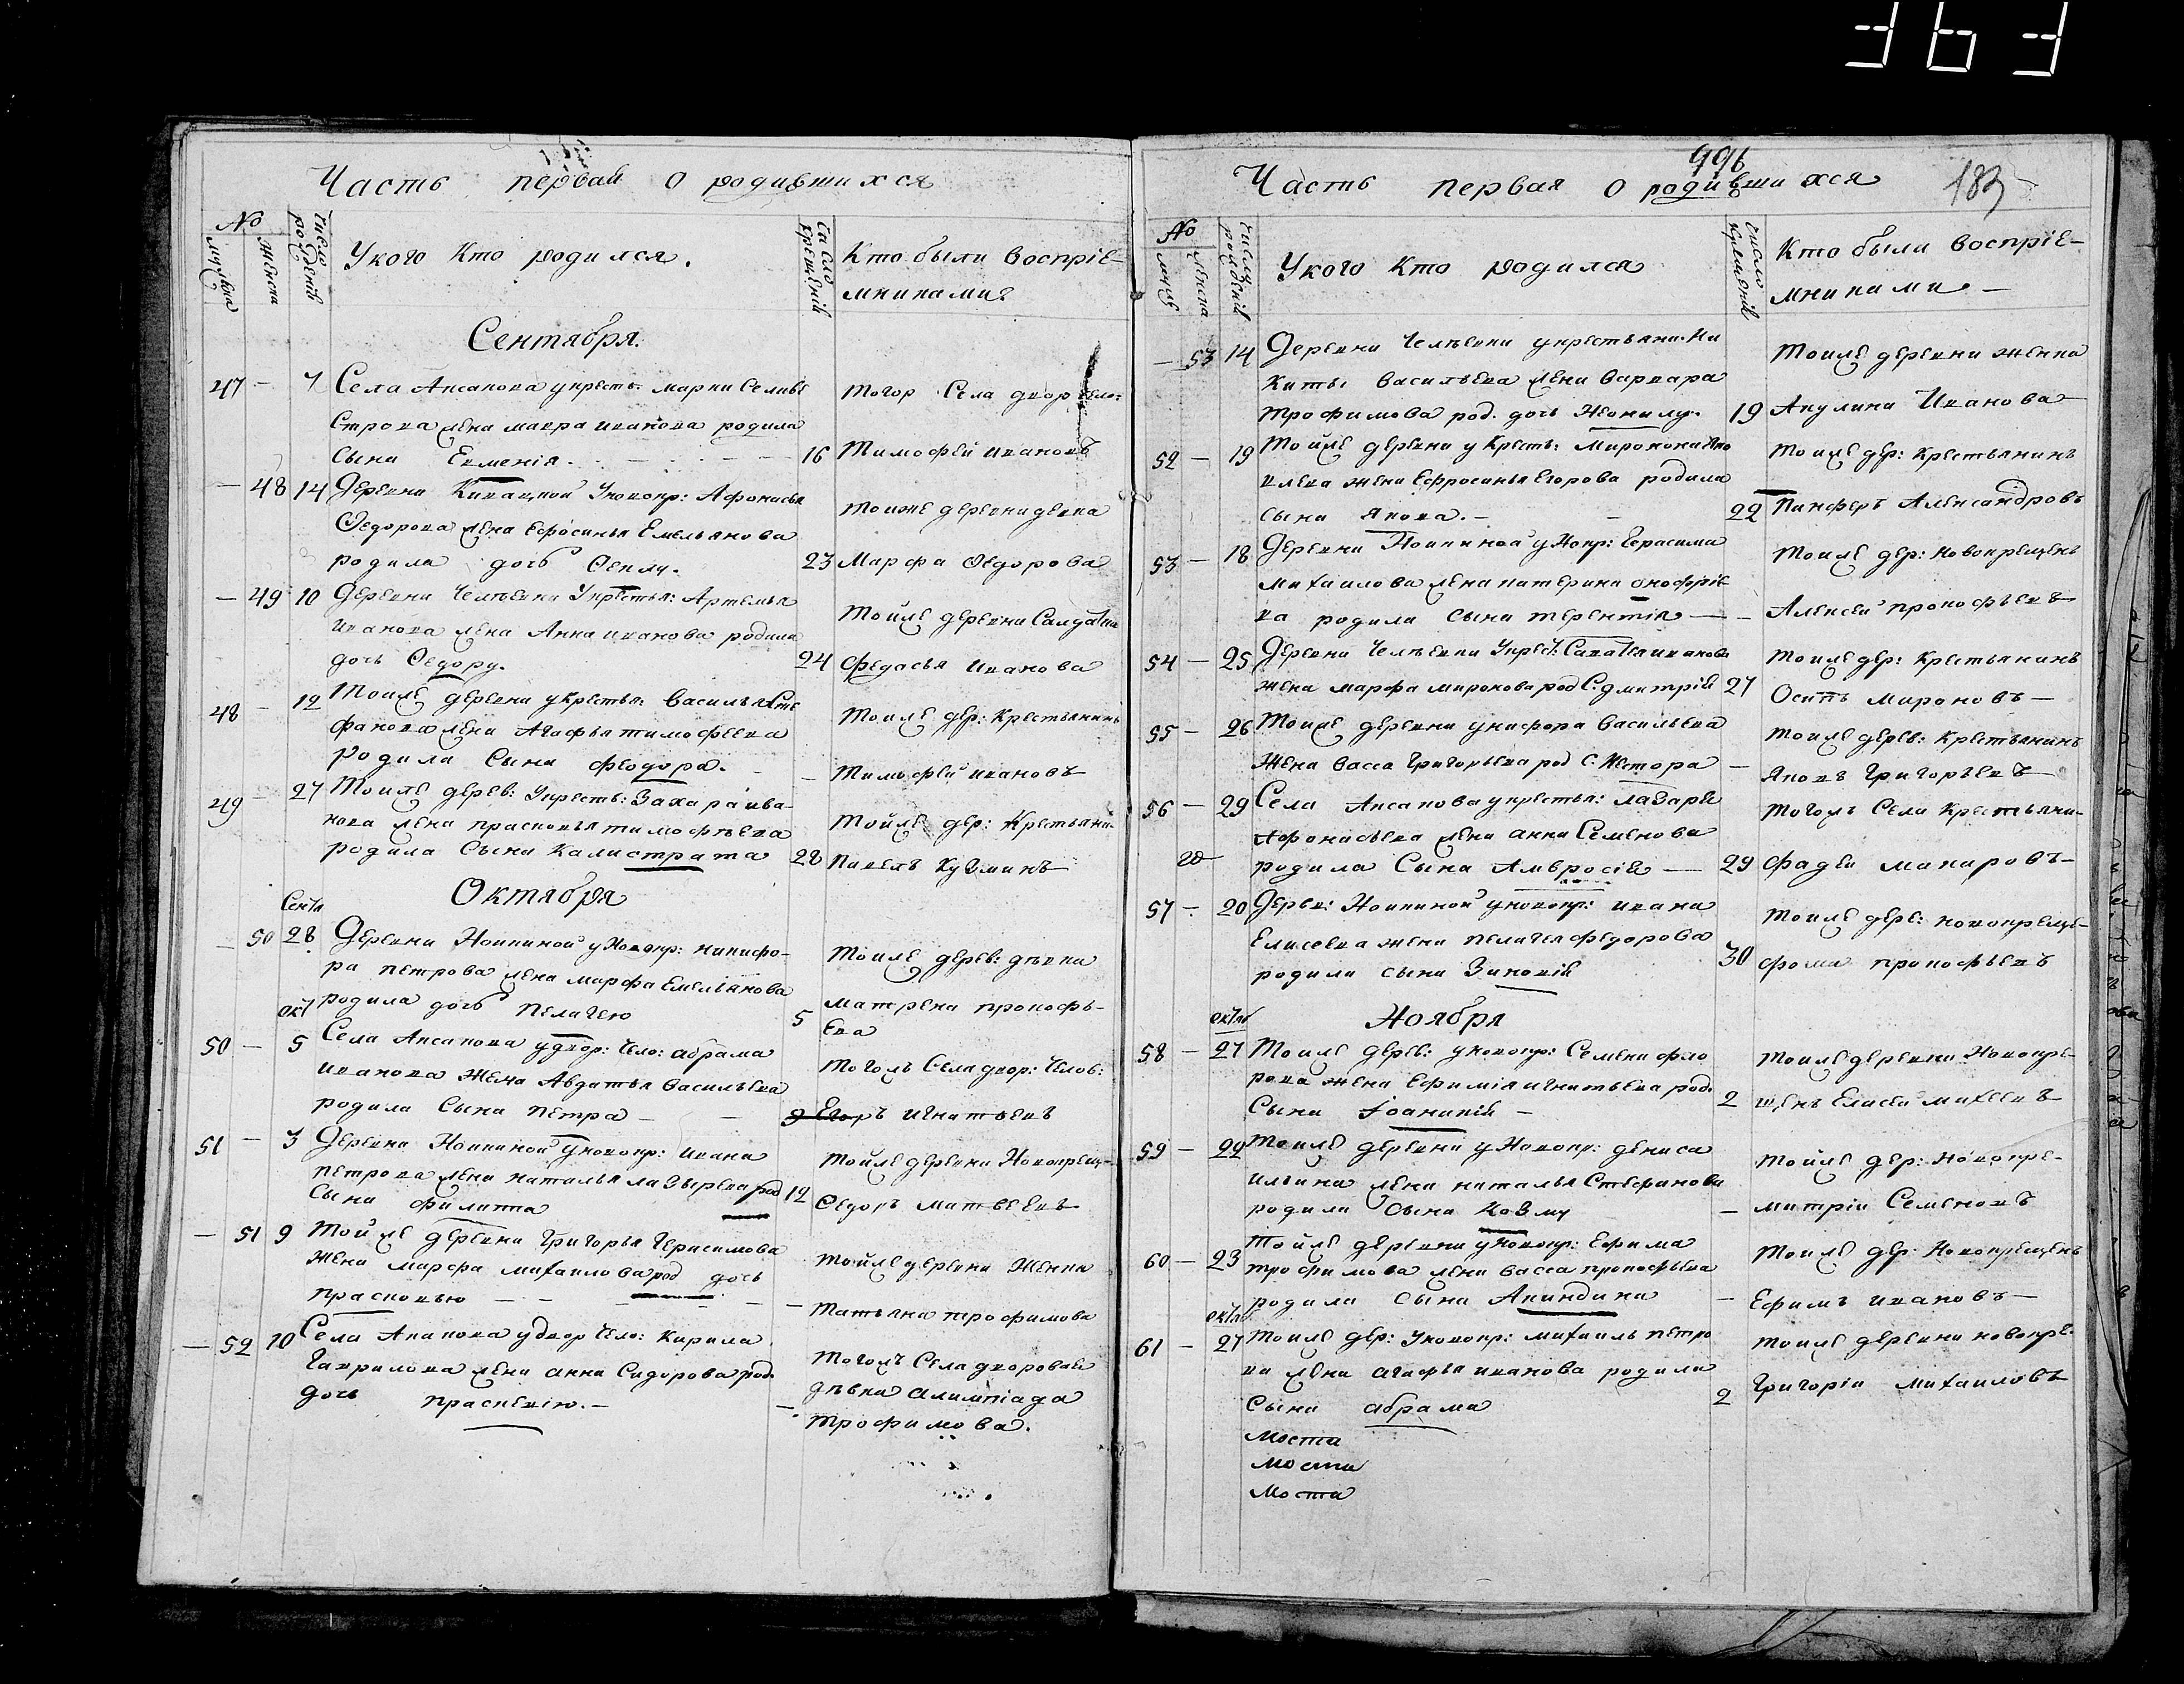 363
Часть первая о родившихся
№
мужска
женска
число рожденій
У кого кто родился.
число крещеній
Кто были воспріе-
мниками
Сентября.
47 – 7 Села Аксакова у крестъ: марки Селивĕ
строва жена мавра иванова родила
сына Евменія. 16
тогож Села двор чело:
Тимофей ивановъ
– 48 14 Деревни Кивацкой У новокр: Афонасья
Ѳедорова жена Ефросинья Емельянова
родила дочь Ѳеклу. 23
тоиже деревни девка
Марфа Ѳедорова
– 49 10 Деревни Челъевки У крестья: Артемья
иванова жена Анна иванова родила
дочь Ѳедору. 24
тойже деревни Салдатка
федосья иванова
48 – 12 Тоиже деревни у крестья: Василья Сте
фанова жена Агафья тимофеева
родила Сына феодора. –
Тоиже дер: крестьянинъ
Тимофей ивановъ
49 – 27 Тоиже дерев: У крестъ: Захара ива-
нова жена прасковья тимофѣева
родила Сына Калистрата 28
Тойже дер: Крестьяни-
Павелъ Кузминъ
Октября
Сентя
– 50 28 Деревни Ноикиной у Новокр: никифо-
ра петрова жена марфа Емельянова
родила дочь пелагею 5
тоиже дерев: дѣвка
матрена прокофь-
Ева
окт
50 – 5 Села Аксакова у двор: чело: абрама
иванова жена Авдатья васильева
родила Сына петра –
тогожъ Села двор: челов:
Егоръ игнатьевъ
51 – 3 Деревни Ноикиной у новокр: ивана
петрова жена наталья лазырева род
Сына филиппа 12
тойже деревни Новокрещ-
Ѳедоръ матвеевъ
– 51 9 Тойже деревни григорья герасимова
жена марфа михаилова род дочь
прасковью – –
тойже деревни женка
татьяна трофимова
– 52 10 Села Акакова у двор чело: Кирила
гаврилова жена анна Сидорова род.
дочь праскевію. –
тогожъ Села дворовая
дѣвка алимпіада
трофимова.
996
183
Часть первая о родившихся
№
число рожденій
У кого кто родился
число крещеній
Кто были воспріе-
мниками –
– 53 14 Деревни Челъевки у крестьяни: Ни
киты васильева жена варвара
трофимова род. дочь Неонилу. 19
тоиже деревни женка
Акулина Иванова
52 – 19 Тойже деревни у крестъ: Миро­нона Яко
влева жена Ефросинья Егорова родила
сына Якова. – 22
тоиже дер: крестьянинъ
Панферъ Александровъ
53 – 18 Деревни Ноикиной у Нокр: Герасима
михаилова жена катерина онофріе
ва родила сына терентія –
тоиже дер: новокрещенъ
Алексей прокофьевъ
54 – 25 Деревни Челъевки У крест: Савател иванова
жена марфа миронова род С. дмитрій 27
тоиже дер: крестьянинъ
Осипъ мироновъ –
55 – 26 Тоиже деревни у нифора васильева
жена васса григорьева род с. Нестора –
тоиже дерев: крестьянинъ
яковъ григорьевъ
56 – 29 Села Аксакова у крестья: лазаря
Афонасьева жена анна Семенова
родила Сына Амвросія – 29
тогожъ Села крестьяни-
фадеи макаровъ –
57 – 20 Дерев: Ноикиной у новокр: ивана
Елисеева жена пелагея федорова
родила сына Зиновій 30
тоиже дерев: новокреще-
фома прокофьевъ
Ноября
октя
58 – 27 Тоиже дерев: у новокр: Семена фло
рова жена Ефимія игнатьева род.
Сына Іоаникій – 2
тоиже деревни Новокре-
щенъ Елисеи михеевъ
59 – 22 тоиже деревни у Новокр: дениса
ильина жена наталья Стефанова
родила Сына Козму –
тойже дер: Новокре-
митріи Семеновъ
60 – 23 тойже деревни у новокр: Ефима
трофимова жена васса прокофьева
родила сына Акиндина –
тоиже дер: Новокрещенъ
Ефимъ ивановъ –
октя
61 – 27 тоиже дер: У новокр: михаилъ петро
ва жена агафья иванова родила
Сына абрама 2
тоиже деревни новокре-
григоріи михаиловъ
моста
моста
моста